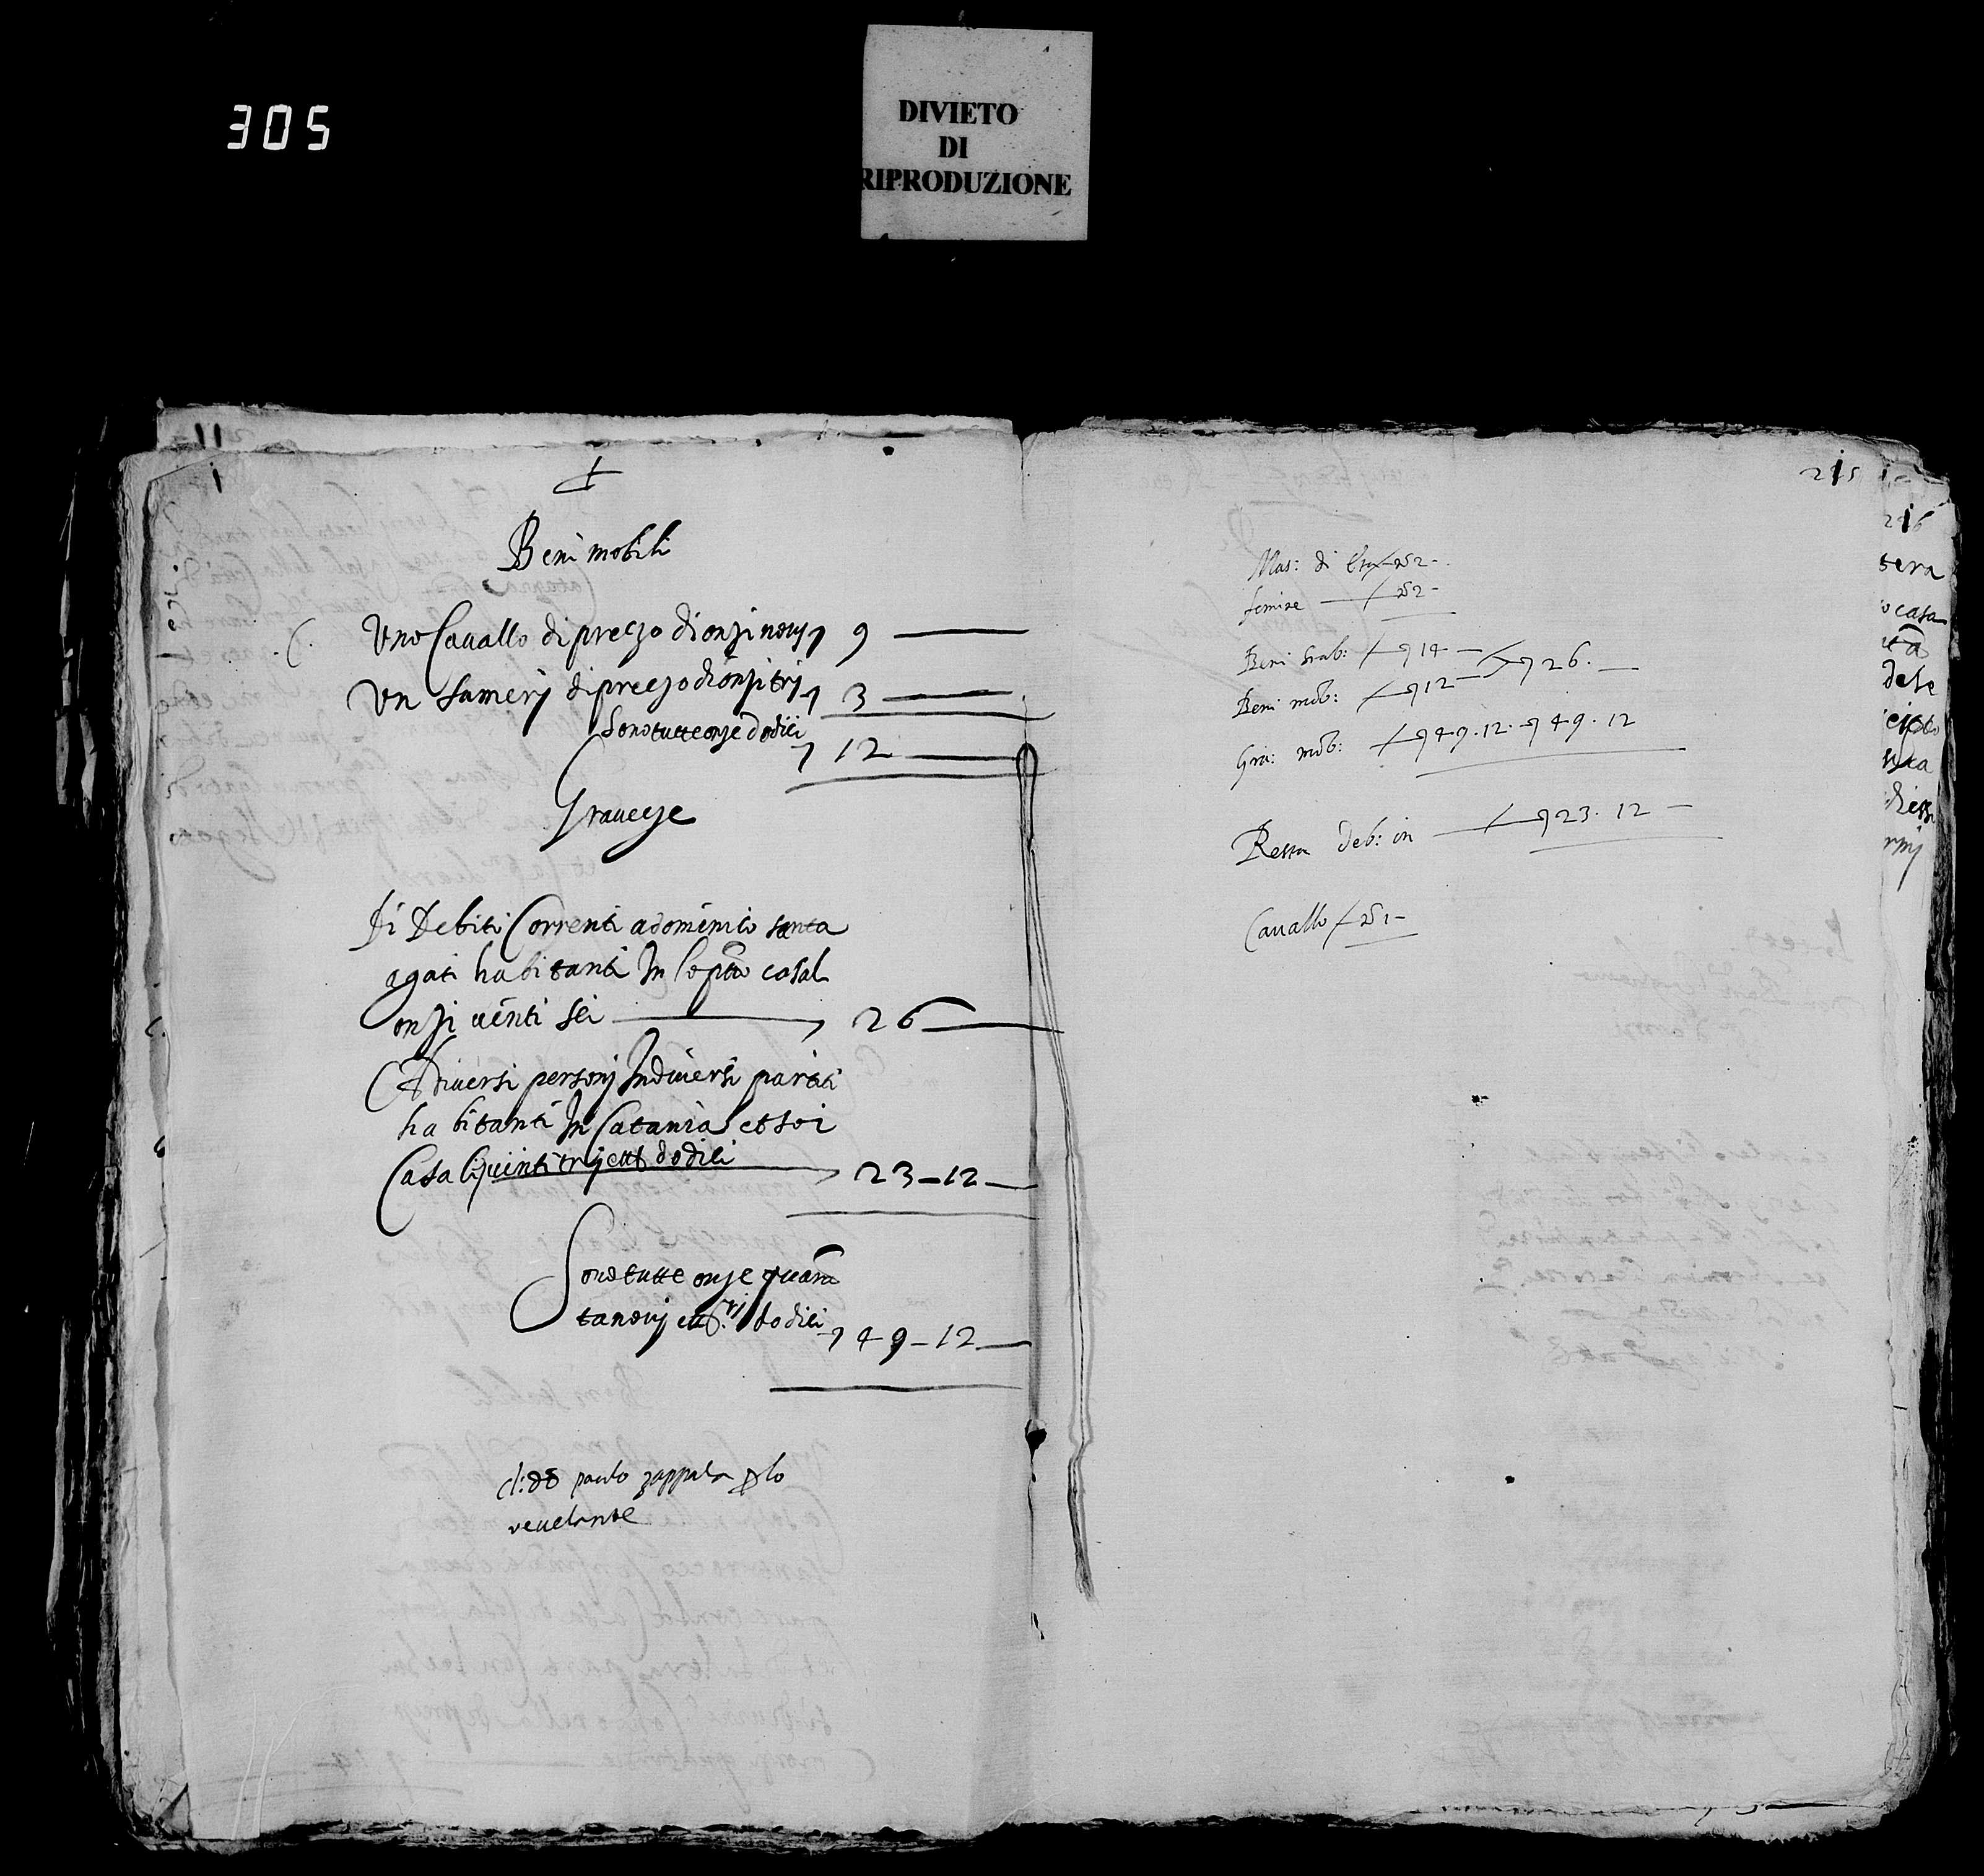 305
DIVIETO
DI
RIPRODUZIONE
Beni mobili
Uno Cavallo di prezzo di onzi novj 7 9 —
Un Samerj di prezzo di onzi trj 7 3 —
Sono tutte onze dodici
7 12 —
Gravezze
Di Debiti Correnti a dominico santa
agati habitanti In lo ptto casal
onzi venti sei — 7 26 —
A diversi personj In diversi partiti
habitanti In Catania et soi
Casali vinti trj et tt dodici 7 23–12 —
Sono tutte onze quaran
tanovj et trj dodici 7 49–12 —
paulo zappala p lo
revelante
215
Mas: di 2 –
femine — 2 –
Beni stab: 14 — 26. —
Beni mob: 12 –
Gra: mob: 49. 12. 49. 12
Resta deb: in — 23. 12 —
Cavallo 1 –
216
sera
casa
dele